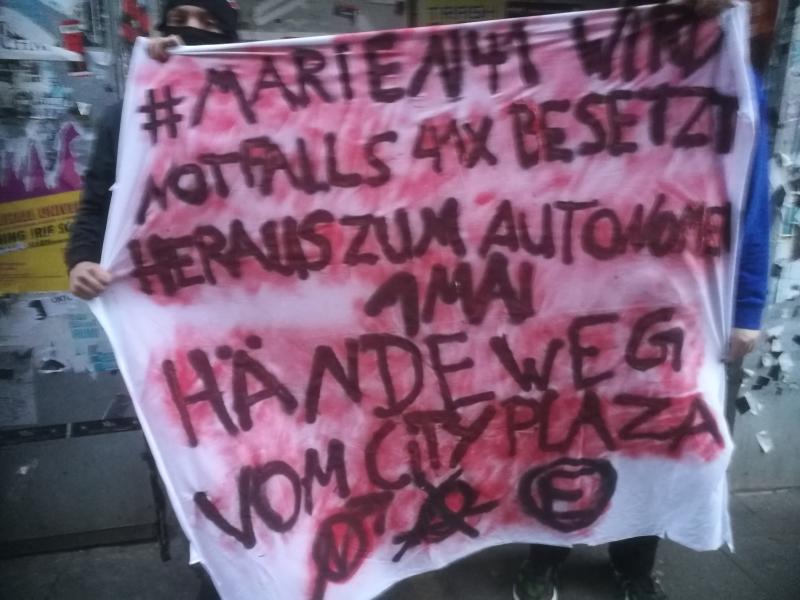 #MARIEN41 WIRD
NOTFALLS 41X BESETZT
HERAUS ZUM AUTONOMEN
1 MAI
HÄNDE WEG
VOM CITY PLAZA